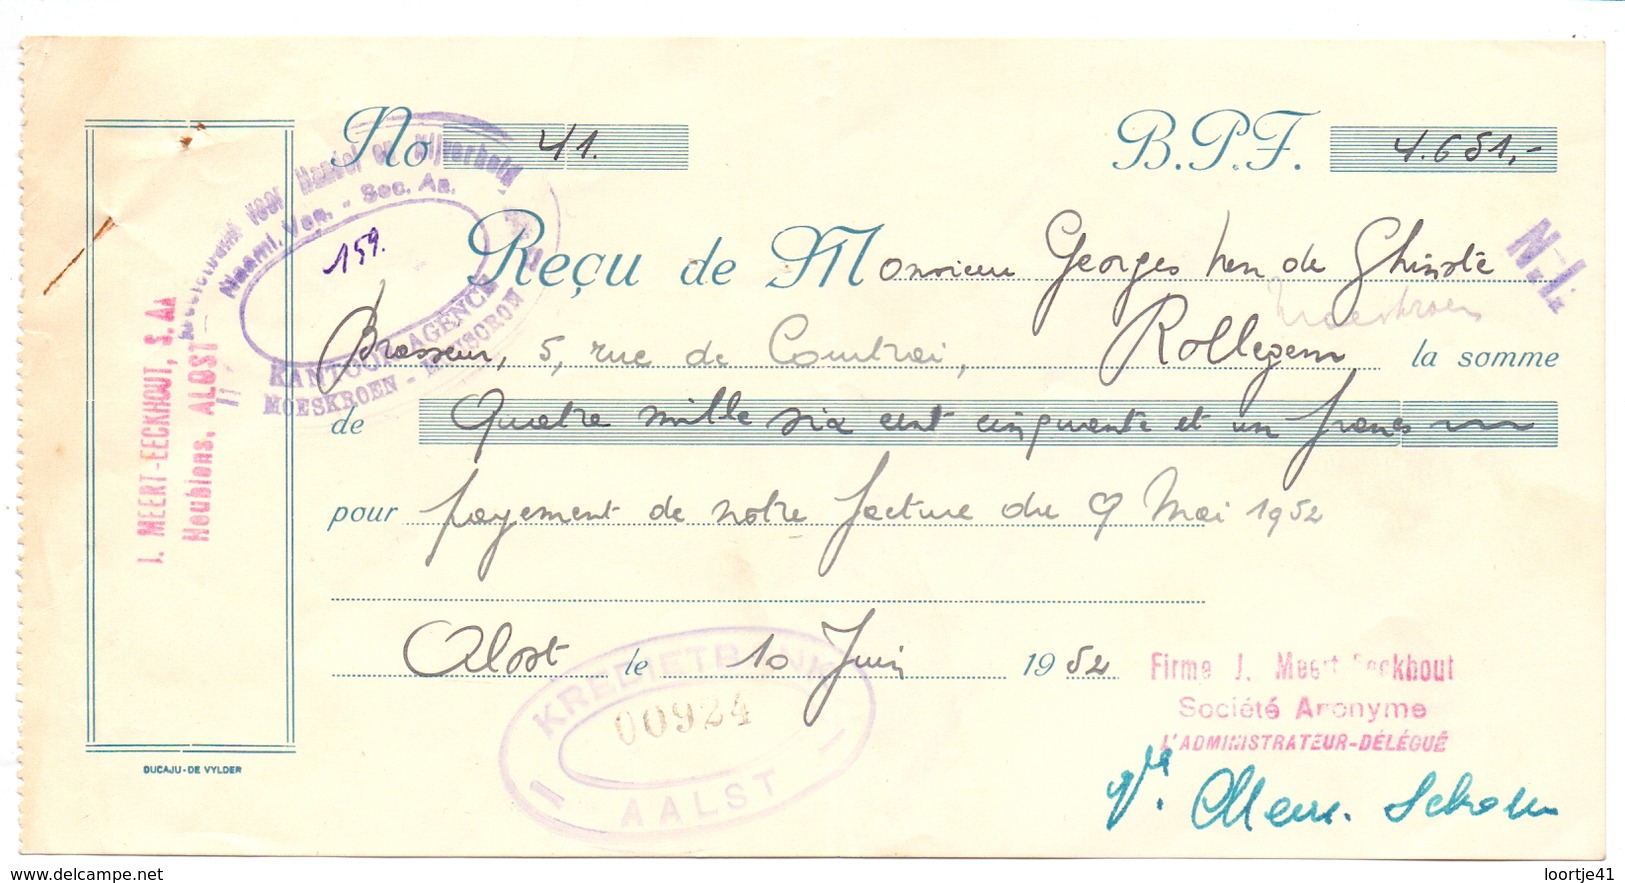 No 41. B.P.F. 4.651,-
Reçu de Monsieur Georges Van de Ghinste
Moeskroen
Brasseur, 5, rue de Courtrai, Rollegem la somme
de Quatre mille six cent cinquante et un francs
pour payement de notre facture du 9 Mai 1952
Alost le 10 Juin 1952
Firme J. Meert-Eeckhout
Société Anonyme
L'ADMINISTRATEUR-DÉLÉGUÉ
Vve
J. MEERT-EECKHOUT, S.A.
Houblons, ALOST
voor Handel en Nijverheid
Naaml. Ven. - Soc. An.
159.
KANTOOR AGENCE
MOESKROEN - MOUSCRON
N.-I.
KREDIETBANK
00924
AALST
DUCAJU-DE VYLDER
delcampe.net
loortje41